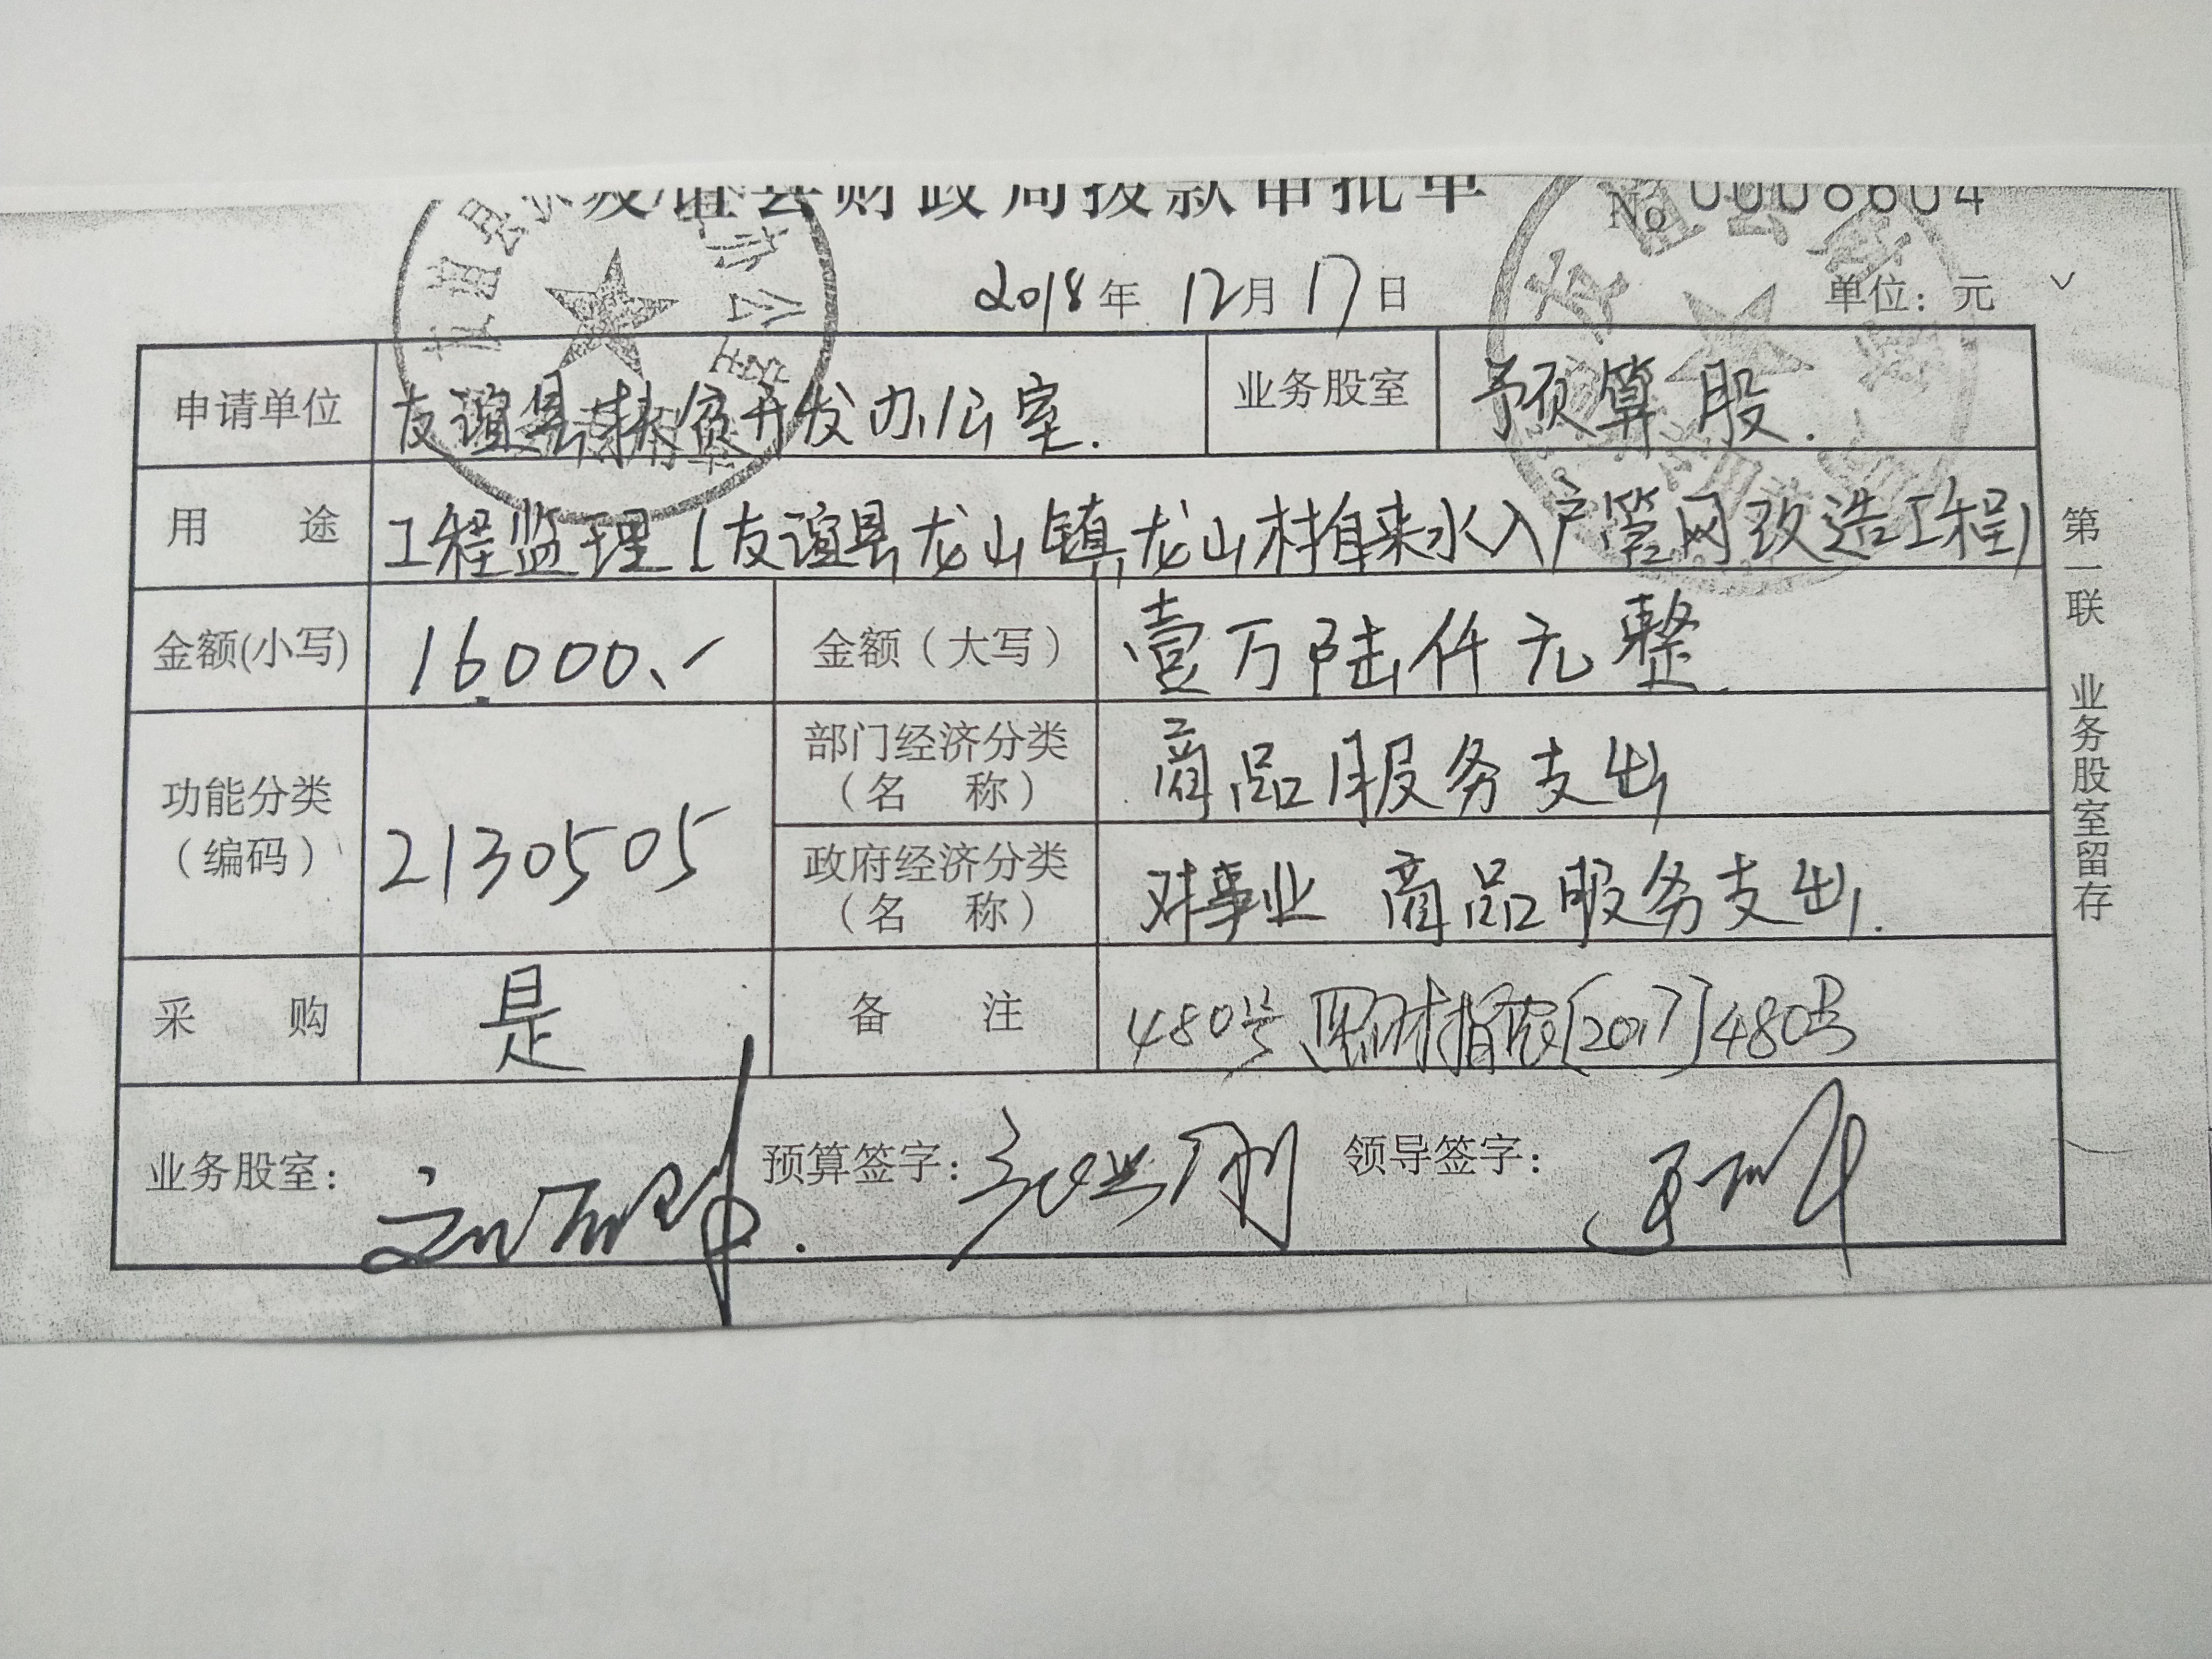 友谊县财政局拨款审批单 No 0008604
2018年 12月 17日 单位：元
申请单位 友谊县扶贫开发办公室. 业务股室 予预算股.
用 途 工程监理(友谊县龙山镇龙山村自来水入户管网改造工程)
金额(小写) 16000.- 金额（大写） 壹万陆仟元整
功能分类（编码） 2130505 部门经济分类（名 称） 商品服务支出
政府经济分类（名 称） 对事业 商品服务支出.
采 购 是 备 注 480号 黑财指农[2017]480号
业务股室： 预算签字： 领导签字：
第一联 业务股室留存